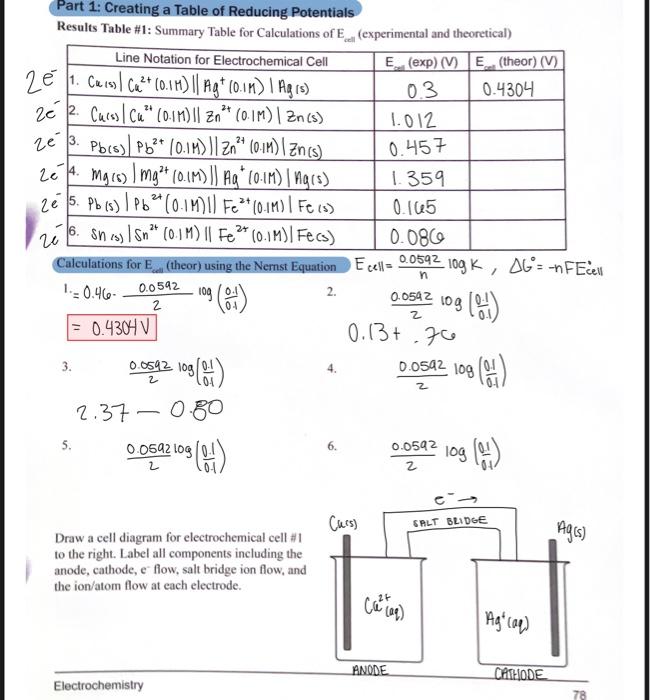 Part 1: Creating a Table of Reducing Potentials
Results Table #1: Summary Table for Calculations of E cell (experimental and theoretical)
Line Notation for Electrochemical Cell E cell (exp) (V) E cell (theor) (V)
2e⁻ 1. Cu(s) | Cu²⁺ (0.1M) || Ag⁺ (0.1M) | Ag(s) 0.3 0.4304
2e⁻ 2. Cu(s) | Cu²⁺ (0.1M) || Zn²⁺ (0.1M) | Zn(s) 1.012
2e⁻ 3. Pb(s) | Pb²⁺ (0.1M) || Zn²⁺ (0.1M) | Zn(s) 0.457
2e⁻ 4. Mg(s) | Mg²⁺ (0.1M) || Ag⁺ (0.1M) | Ag(s) 1.359
2e⁻ 5. Pb(s) | Pb²⁺ (0.1M) || Fe²⁺ (0.1M) | Fe(s) 0.165
2e⁻ 6. Sn(s) | Sn²⁺ (0.1M) || Fe²⁺ (0.1M) | Fe(s) 0.086
Calculations for E cell (theor) using the Nernst Equation Ecell = 0.0592/n log K , ΔG° = -nFE°cell
1. = 0.46 - 0.0592/2 log (0.1/0.1)
= 0.4304 V
2. 0.0592/2 log (0.1/0.1)
0.13 + .76
3. 0.0592/2 log (0.1/0.1)
2.37 — 0.80
4. 0.0592/2 log (0.1/0.1)
5. 0.0592/2 log (0.1/0.1)
6. 0.0592/2 log (0.1/0.1)
Draw a cell diagram for electrochemical cell #1
to the right. Label all components including the
anode, cathode, e⁻ flow, salt bridge ion flow, and
the ion/atom flow at each electrode.
e⁻ →
Cu(s) SALT BRIDGE Ag(s)
Cu²⁺(aq) Ag⁺(aq)
ANODE CATHODE
Electrochemistry 78